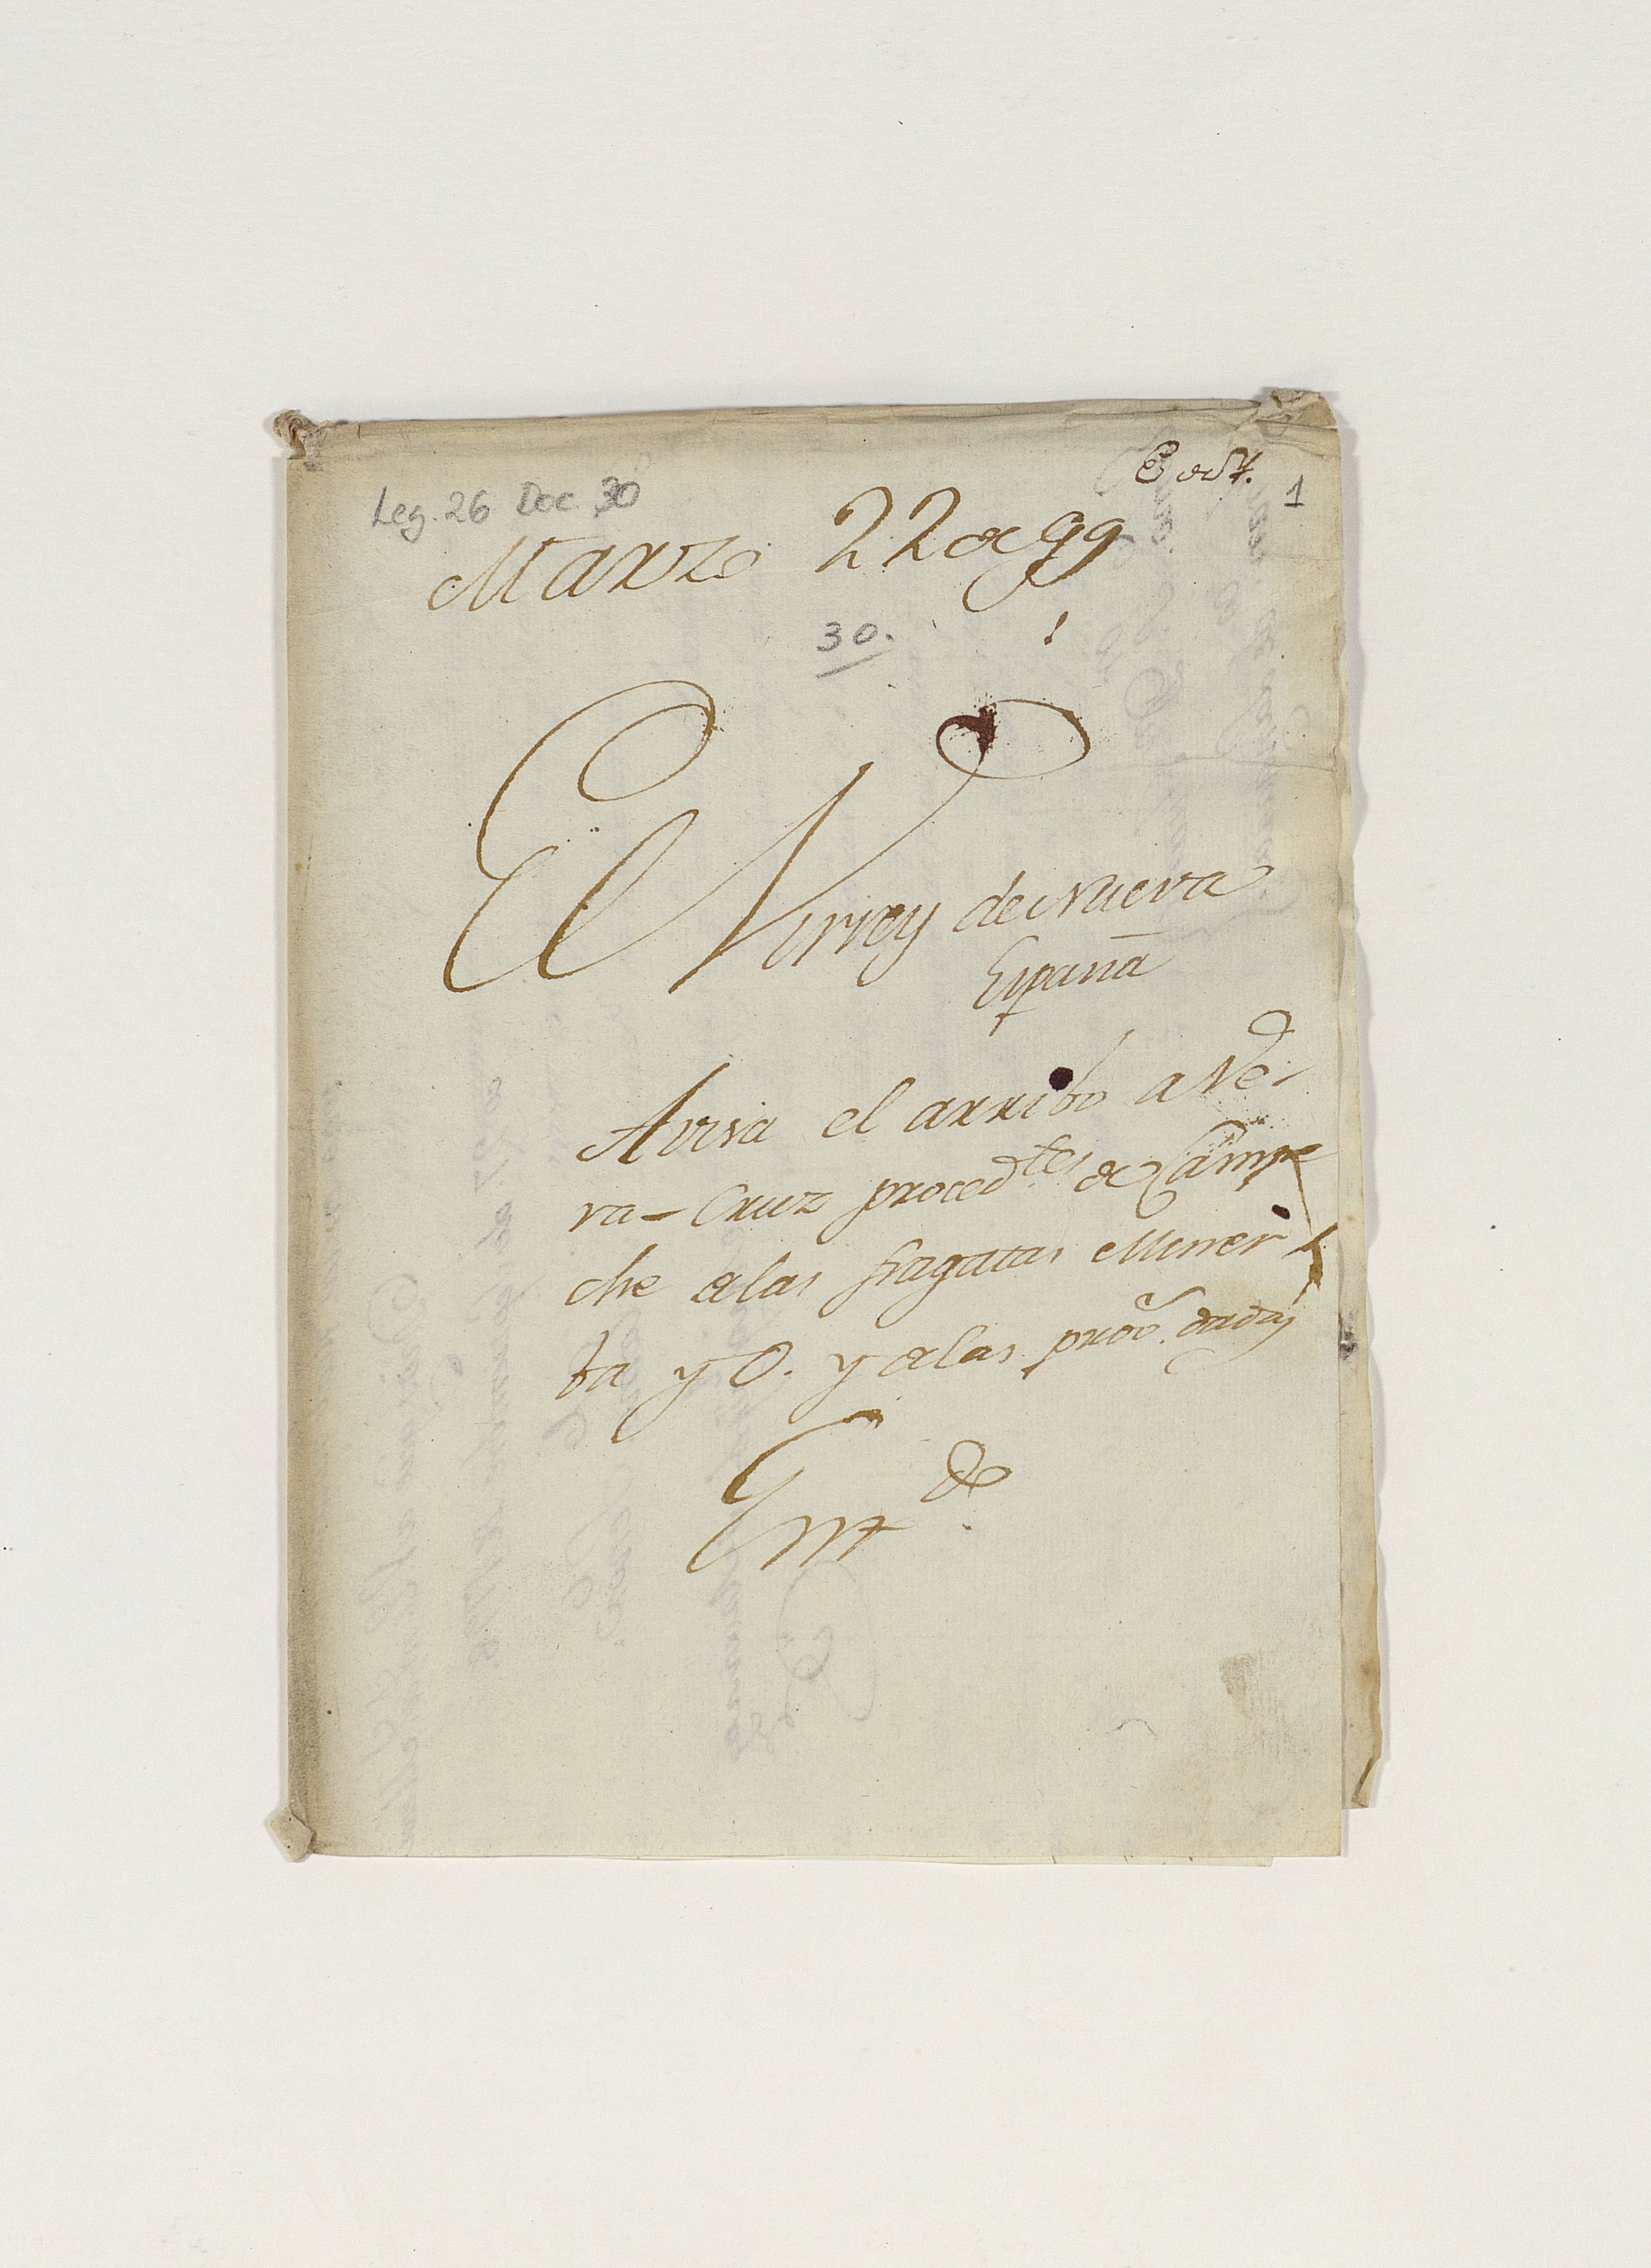 Leg. 26 Doc. 30
1
Marzo 22 de 99
30.
El Virrey de Nueva
España
Avisa el arribo a Ve-
ra-Cruz procedtes de Campe
che de las fragatas Miner
ba y O. y de las prov. dadas
Entdo.